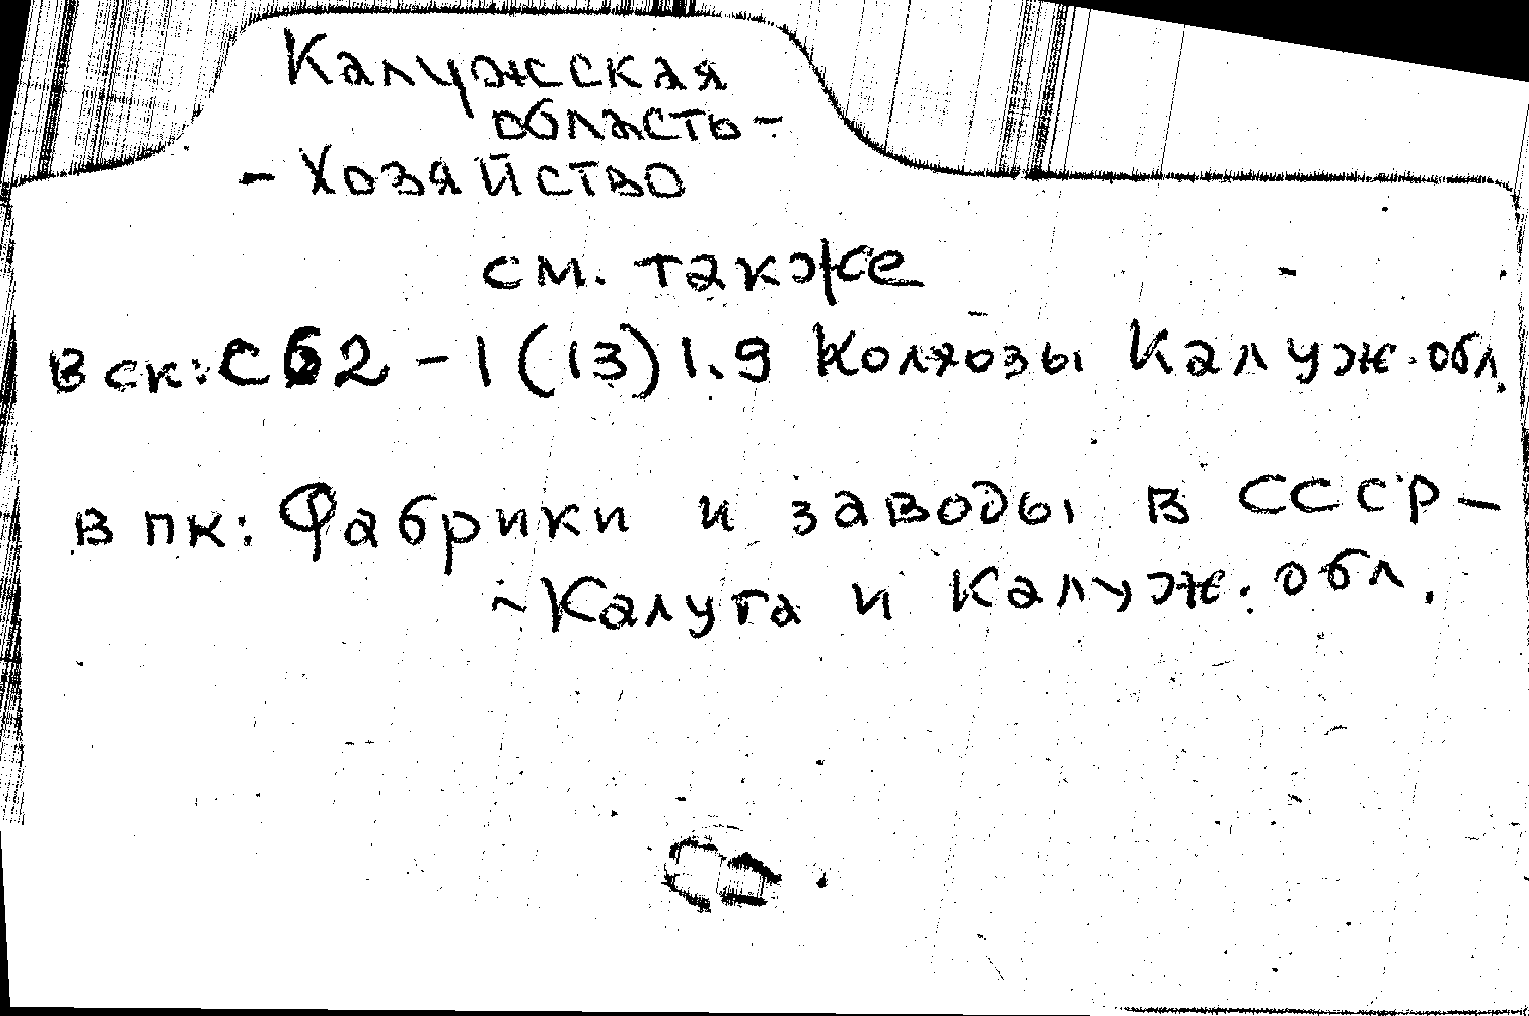 Калужская
область -
- Хозяйство
см. также
В ск: С62 - 1(13)1.9 Колхозы Калуж. обл.
в пк: Фабрики и заводы в СССР -
- Калуга и Калуж. обл.